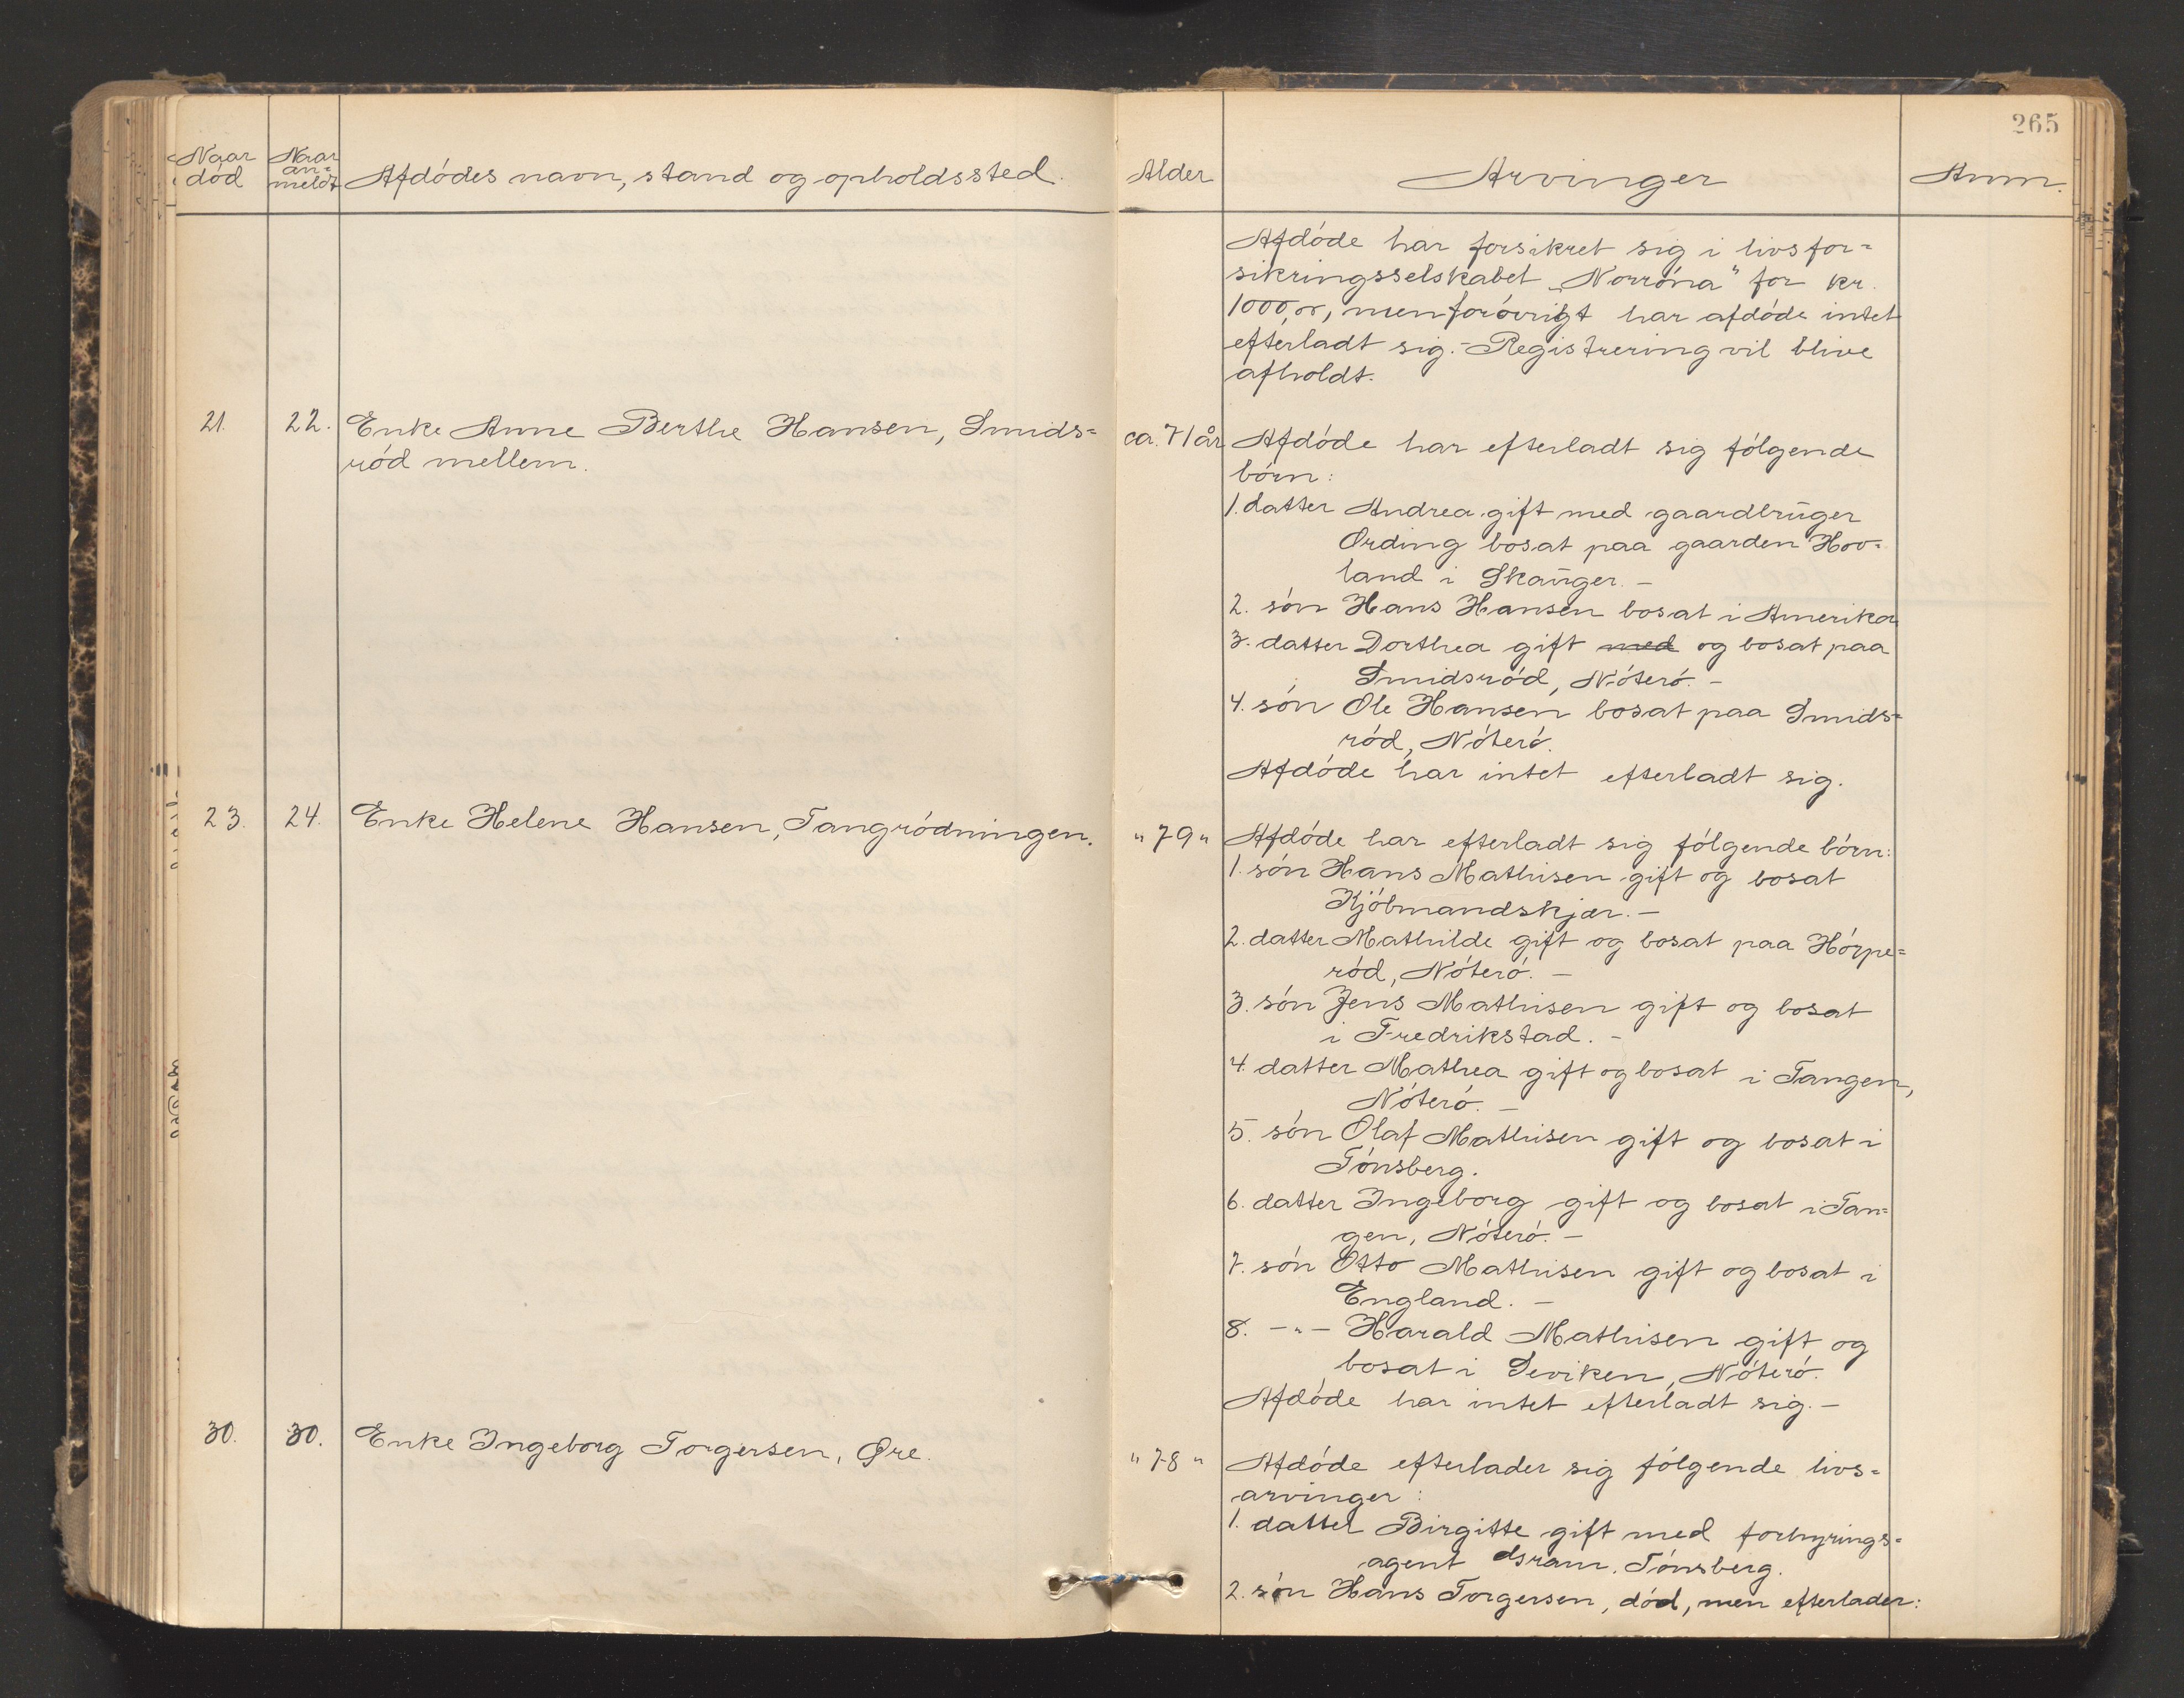 265
Naar død
Naar an=meldt
Afdódes navn, stand og opholdssted.
Alder
Arvinger
Anm.
Afdóde har forsikret sig i livsfor=
sikringsselskabet „Norróna" for kr.
1000,00, men foróvrigt har afdóde intet
efterladt sig. - Registrering vil blive
afholdt.
21. 22. Enke Anne Berthe Hansen, Smids=
ród mellem.
ca. 71 år
Afdóde har efterladt sig fólgende
bórn:
1. datter Andrea gift med gaardbrūger
Ording bosat paa gaarden Hov=
land i Skaūger. -
2. són Hans Hansen bosat i Amerika
3. datter Dorthea gift med og bosat paa
Smidsród, Nóteró. -
4. són Ole Hansen bosat paa Smids=
ród, Nóteró.
Afdóde har intet efterladt sig.
23. 24. Enke Helene Hansen, Tangródningen.
" 79 "
Afdóde har efterladt sig fólgende bórn:
1. són Hans Mathisen gift og bosat
Kjóbmandskjær. -
2. datter Mathilde gift og bosat paa Hórpe=
ród, Nóteró. -
3. són Jens Mathisen gift og bosat
i Fredrikstad. -
4. datter Mathea gift og bosat i Tangen,
Nóteró. -
5. són Olaf Mathisen gift og bosat i
Tónsberg.
6. datter Ingeborg gift og bosat i Tan=
gen, Nóteró. -
7. són Otto Mathisen gift og bosat i
England. -
8. -"- Harald Mathisen gift og
bosat i Seviken, Nóteró.
Afdóde har intet efterladt sig. -
30. 30. Enke Ingeborg Torgersen, Øre.
" 78 "
Afdóde efterlader sig fólgende livs=
arvinger:
1. datter Birgitte gift med forhyrings=
agent Tónsberg.
2. són Hans Torgersen, dód, men efterlader: